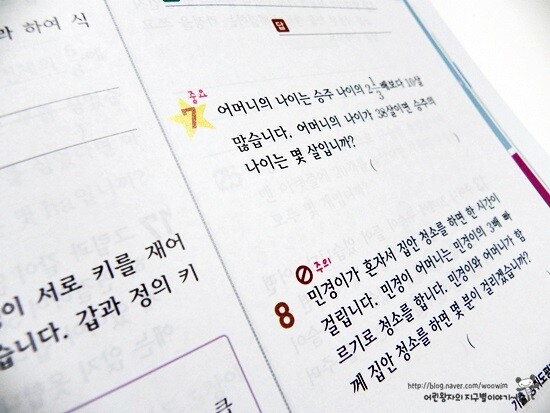 라 하여 식
답
중요
7 어머니의 나이는 승주 나이의 2 1/3배보다 10살
많습니다. 어머니의 나이가 38살이면 승주의
나이는 몇 살입니까?
(
이 서로 키를 재어
습니다. 갑과 정의 키
주의
8 민경이가 혼자서 집안 청소를 하면 한 시간이
걸립니다. 민경이 어머니는 민경이의 3배 빠
르기로 청소를 합니다. 민경이와 어머니가 함
께 집안 청소를 하면 몇 분이 걸리겠습니까?
(
http://blog.naver.com/woowim
어린왕자의 지구별이야기